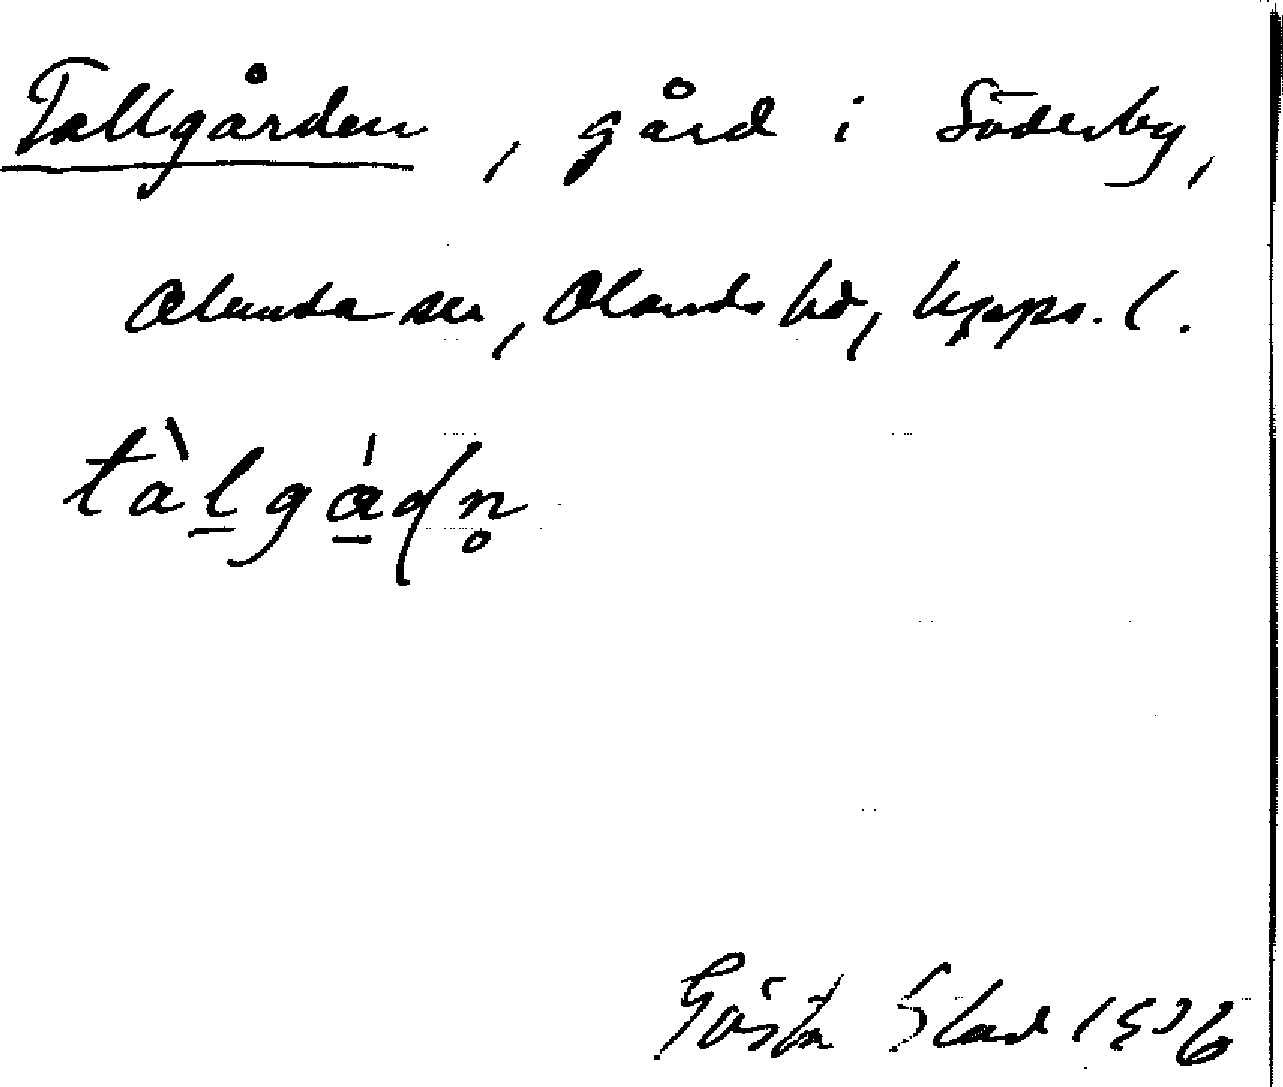 Tallgården, gård i Söderby,
Alunda sn, Olands hd, Upps. l.
tàl̲gá̲dn̥
Gösta